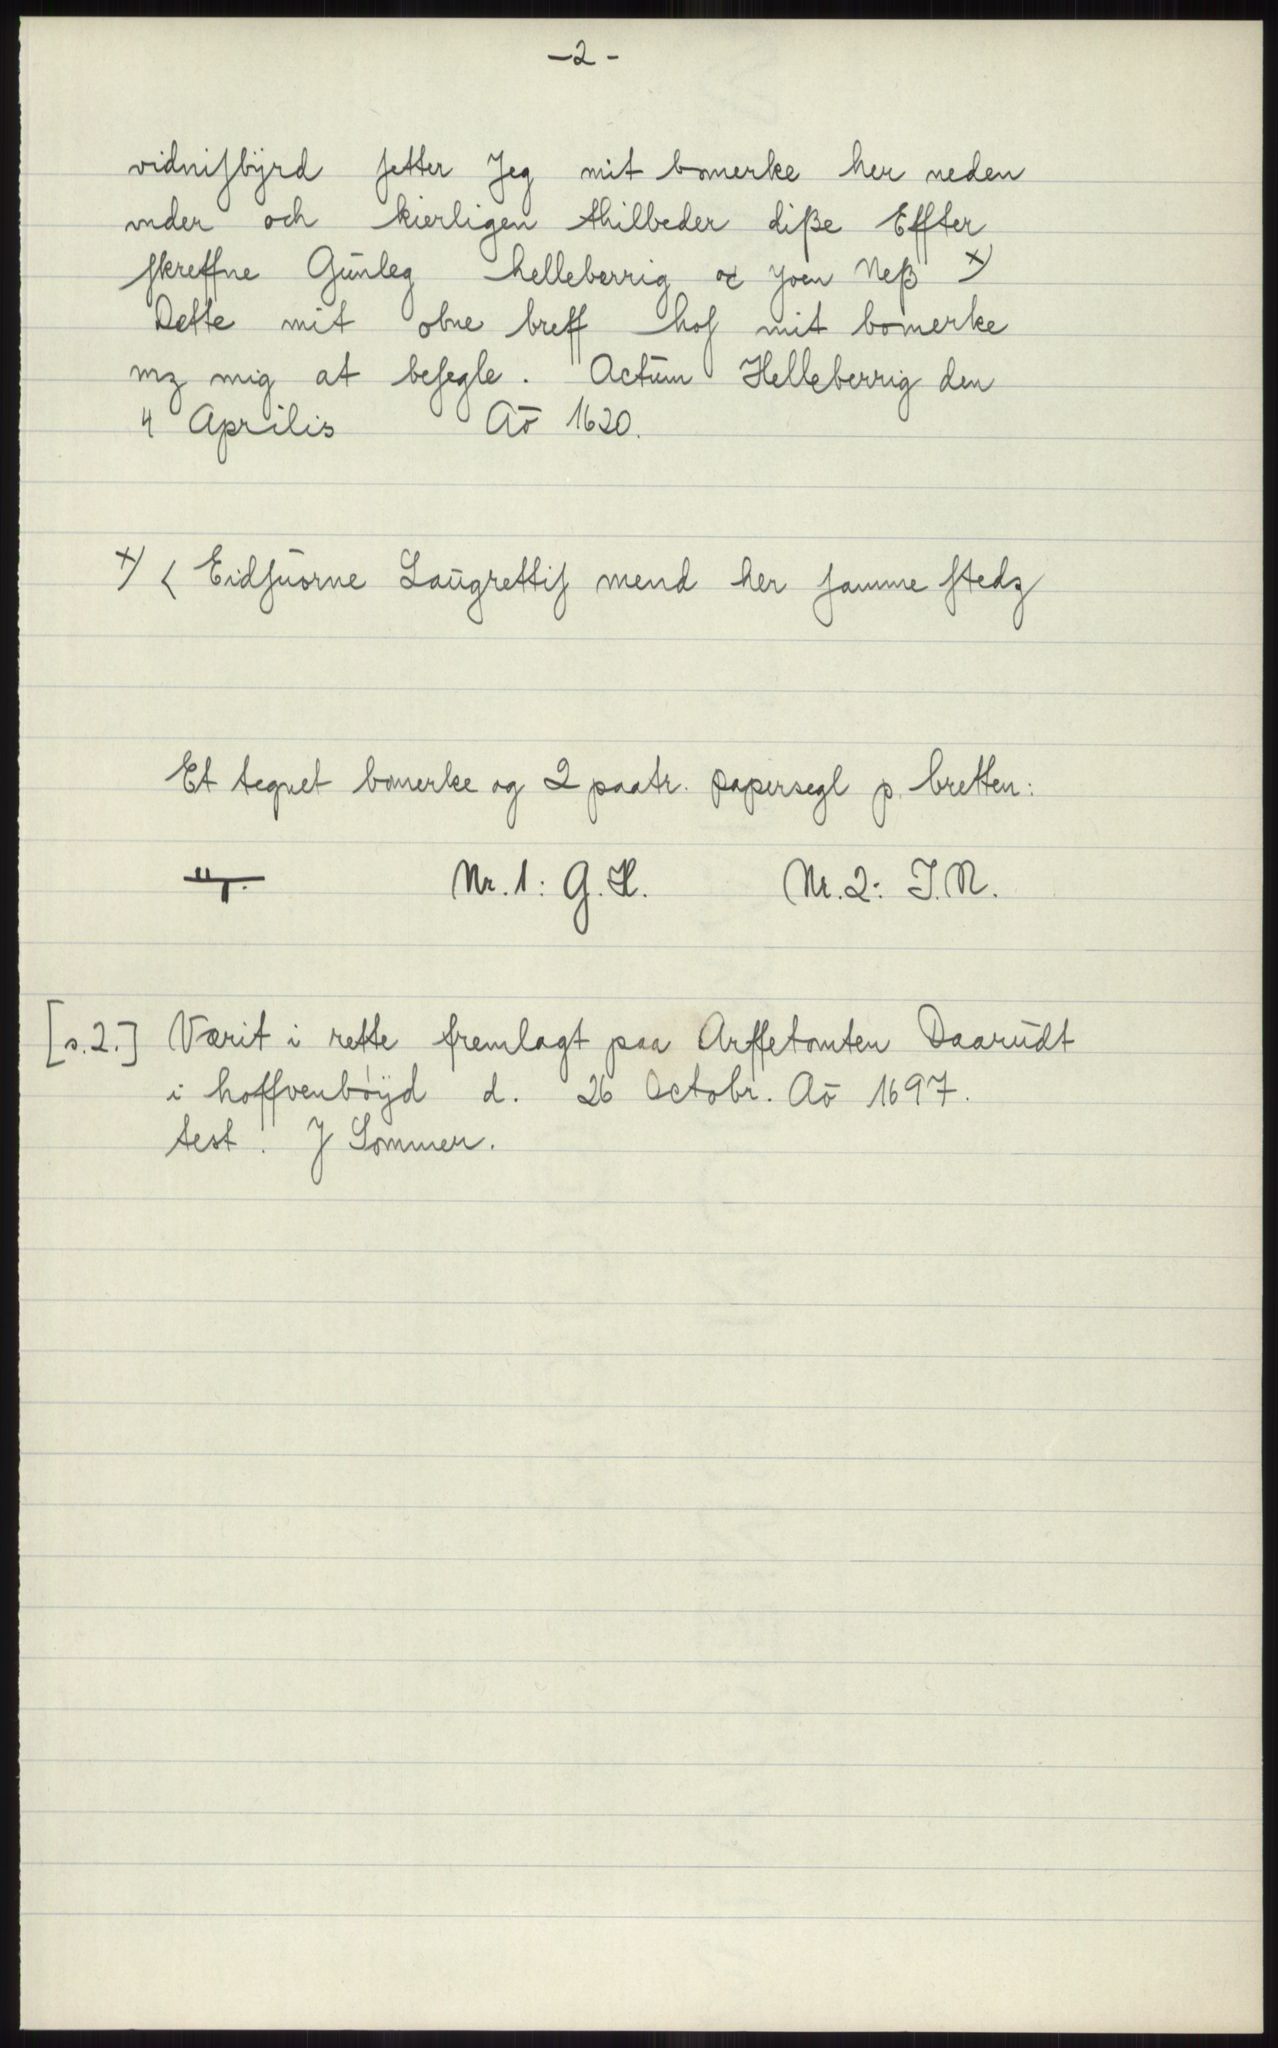 -2-
vidnisbÿrd setter Jeg mit bomerke her neden
vnder och kierligen thilbeder diße Effter
skreffne Gūnleg helleberrig oc Joen Neß x)
Dette mit obne breff hos mit bomerke
mz mig at besegle. Actūm Helleberrig den
4 Aprilis Aō 1620.
x) < Eidsūorne Laūgrettis mend her samme stedz
Et tegnet bomerke og 2 paatr. papersegl p. bretten:
Nr. 1: G. H. Nr. 2: J. N.
[s. 2.] Værit i rette fremlagt paa Arffetomten Daarūdt
i hoffvenbøÿd d. 26 Octobr. Aō 1697.
test. J Sommer.